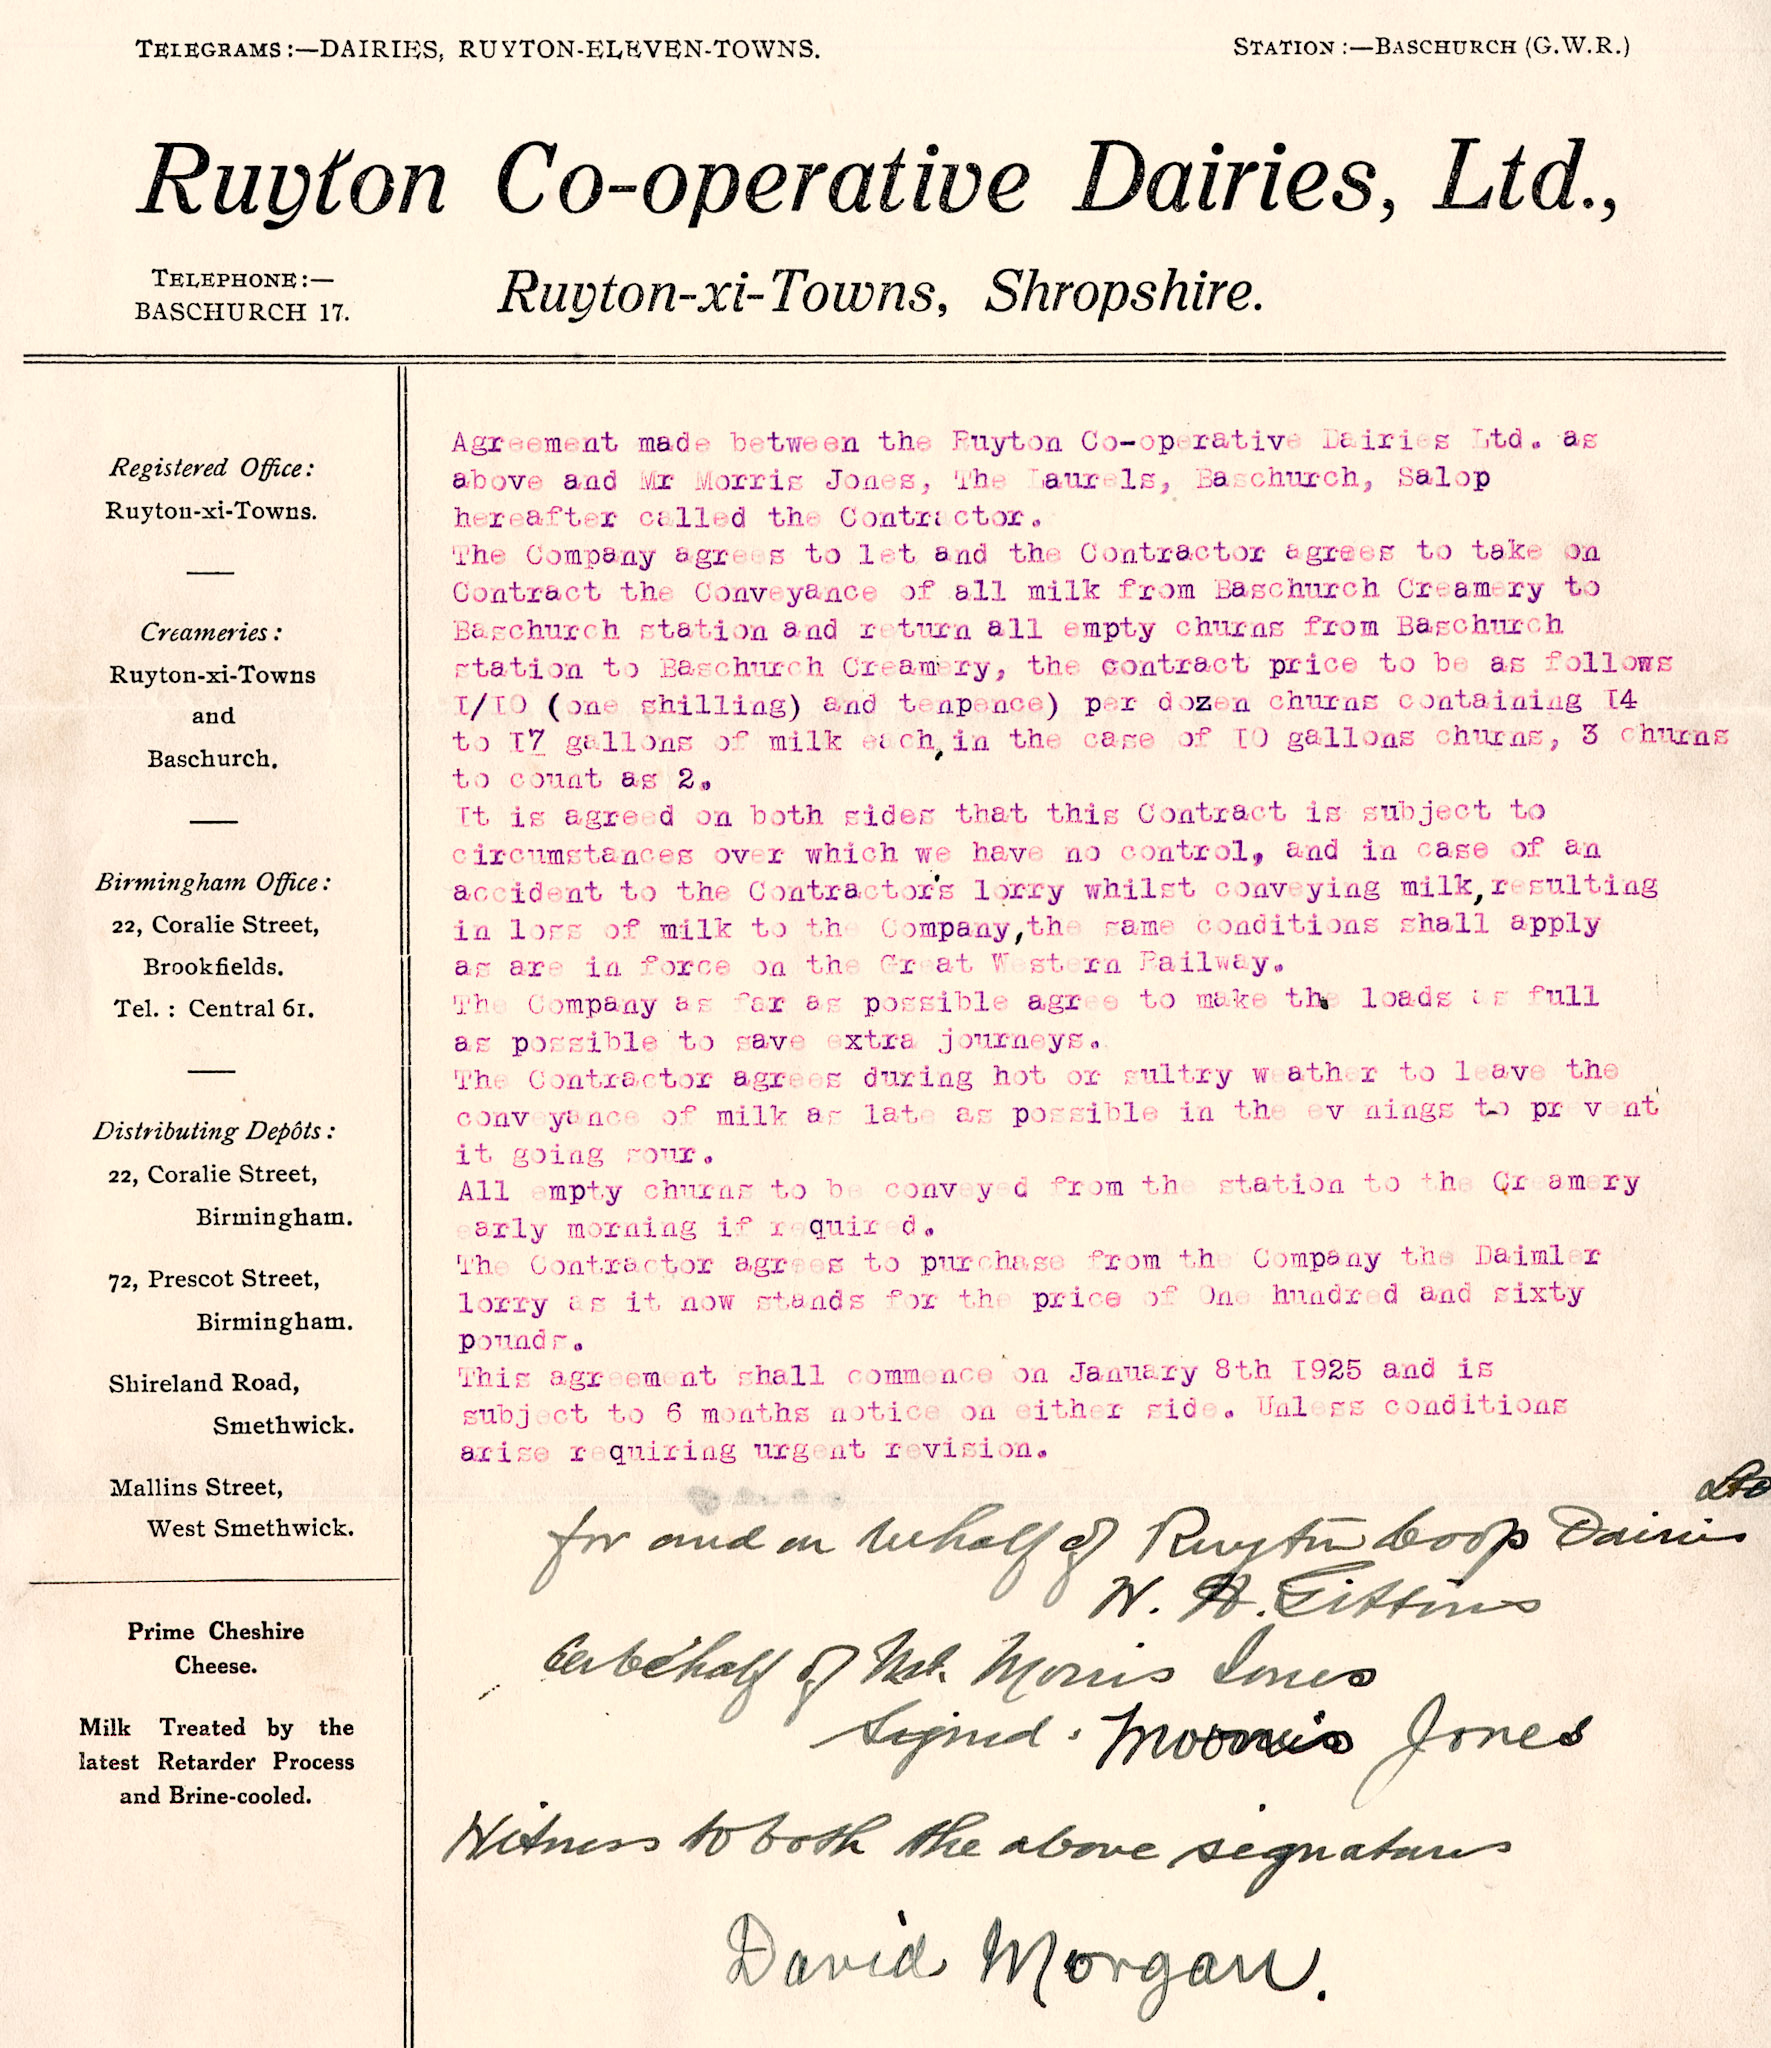 TELEGRAMS:—DAIRIES, RUYTON-ELEVEN-TOWNS.
STATION:—BASCHURCH (G.W.R.)
Ruyton Co-operative Dairies, Ltd.,
TELEPHONE:—
BASCHURCH 17.
Ruyton-xi-Towns, Shropshire.
Registered Office:
Ruyton-xi-Towns.
Creameries:
Ruyton-xi-Towns
and
Baschurch.
Birmingham Office:
22, Coralie Street,
Brookfields.
Tel.: Central 61.
Distributing Depôts:
22, Coralie Street,
Birmingham.
72, Prescot Street,
Birmingham.
Shireland Road,
Smethwick.
Mallins Street,
West Smethwick.
Prime Cheshire
Cheese.
Milk Treated by the
latest Retarder Process
and Brine-cooled.
Agreement made between the Ruyton Co-operative Dairies Ltd. as
above and Mr Morris Jones, The Laurels, Baschurch, Salop
hereafter called the Contractor.
The Company agrees to let and the Contractor agrees to take on
Contract the Conveyance of all milk from Baschurch Creamery to
Baschurch station and return all empty churns from Baschurch
station to Baschurch Creamery, the contract price to be as follows
I/IO (one shilling) and tenpence) per dozen churns containing I4
to I7 gallons of milk each, in the case of IO gallons churns, 3 churns
to count as 2.
It is agreed on both sides that this Contract is subject to
circumstances over which we have no control, and in case of an
accident to the Contractor's lorry whilst conveying milk, resulting
in loss of milk to the Company, the same conditions shall apply
as are in force on the Great Western Railway.
The Company as far as possible agree to make the loads as full
as possible to save extra journeys.
The Contractor agrees during hot or sultry weather to leave the
conveyance of milk as late as possible in the evenings to prevent
it going sour.
All empty churns to be conveyed from the station to the Creamery
early morning if required.
The Contractor agrees to purchase from the Company the Daimler
lorry as it now stands for the price of One hundred and sixty
pounds.
This agreement shall commence on January 8th I925 and is
subject to 6 months notice on either side. Unless conditions
arise requiring urgent revision.
for and on behalf of Ruyton Coop Dairies Ltd
W. H. Gittins
On behalf of Mr. Morris Jones
Signed. Morris Jones
Witness to both the above signatures
David Morgan.